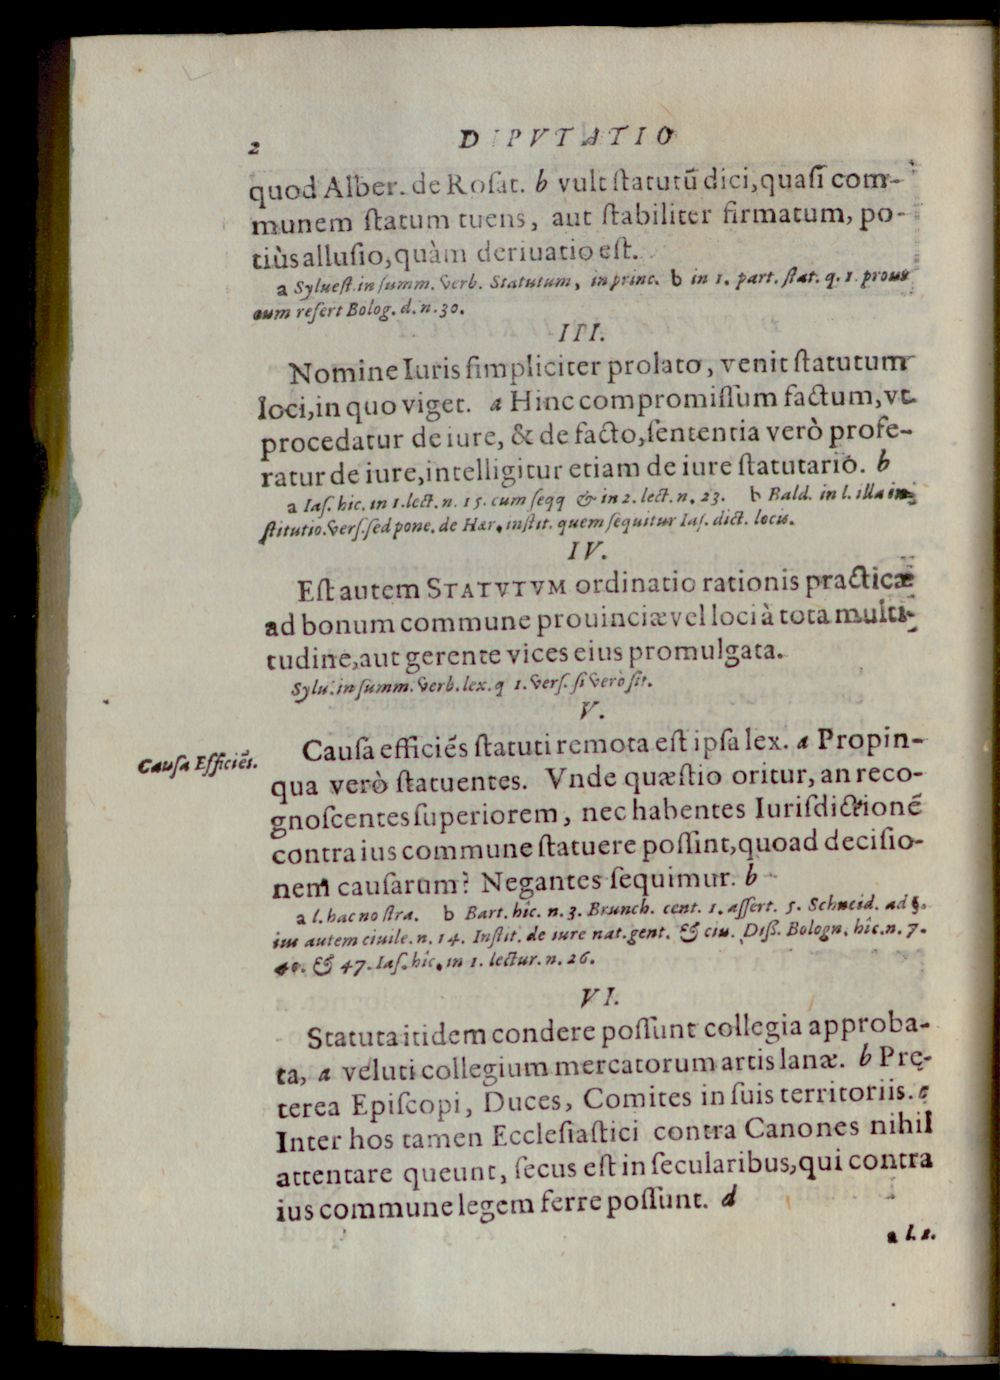 2 DISPVTATIO
quod Alber. de Rosat. b vult statutū dici, quasi com-
munem statum tuens, aut stabiliter firmatum, po-
tiùs allusio, quàm deriuatio est.
a Syluest. in summ. verb. Statutum, in princ. b in 1. part. stat. q. 1. prout
eum refert Bolog. d. n. 30.
III.
Nomine Iuris simpliciter prolato, venit statutum
loci, in quo viget. a Hinc compromissum factum, vt
procedatur de iure, & de facto, sententia verò profe-
ratur de iure, intelligitur etiam de iure statutario. b
a Ias. hic. in 1. lect. n. 15. cum seqq & in 2. lect. n. 23. b Bald. in l. illa in-
stitutio. vers. sed pone. de Hær. instit. quem sequitur Ias. dict. locis.
IV.
Est autem STATVTVM ordinatio rationis practicæ
ad bonum commune prouinciæ vel loci à tota multi-
tudine, aut gerente vices eius promulgata.
Sylu. in summ. verb. lex. q 1. vers. si verò sit.
V.
Causa Efficiēs.
Causa efficiēs statuti remota est ipsa lex. a Propin-
qua verò statuentes. Vnde quæstio oritur, an reco-
gnoscentes superiorem, nec habentes Iurisdictionē
contra ius commune statuere possint, quoad decisio-
nem causarum? Negantes sequimur. b
a l. hac nostra. b Bart. hîc. n. 3. Brunch. cent. 1. assert. 5. Schneid. ad §.
ius autem ciuile. n. 14. Instit. de iure nat. gent. & ciu. Diss. Bologn. hîc. n. 7.
40. & 47. Ias. hîc, in 1. lectur. n. 26.
VI.
Statuta itidem condere possunt collegia approba-
ta, a veluti collegium mercatorum artis lanæ. b Pre̜-
terea Episcopi, Duces, Comites in suis territoriis. c
Inter hos tamen Ecclesiastici contra Canones nihil
attentare queunt, secus est in secularibus, qui contra
ius commune legem ferre possunt. d
a l. 1.